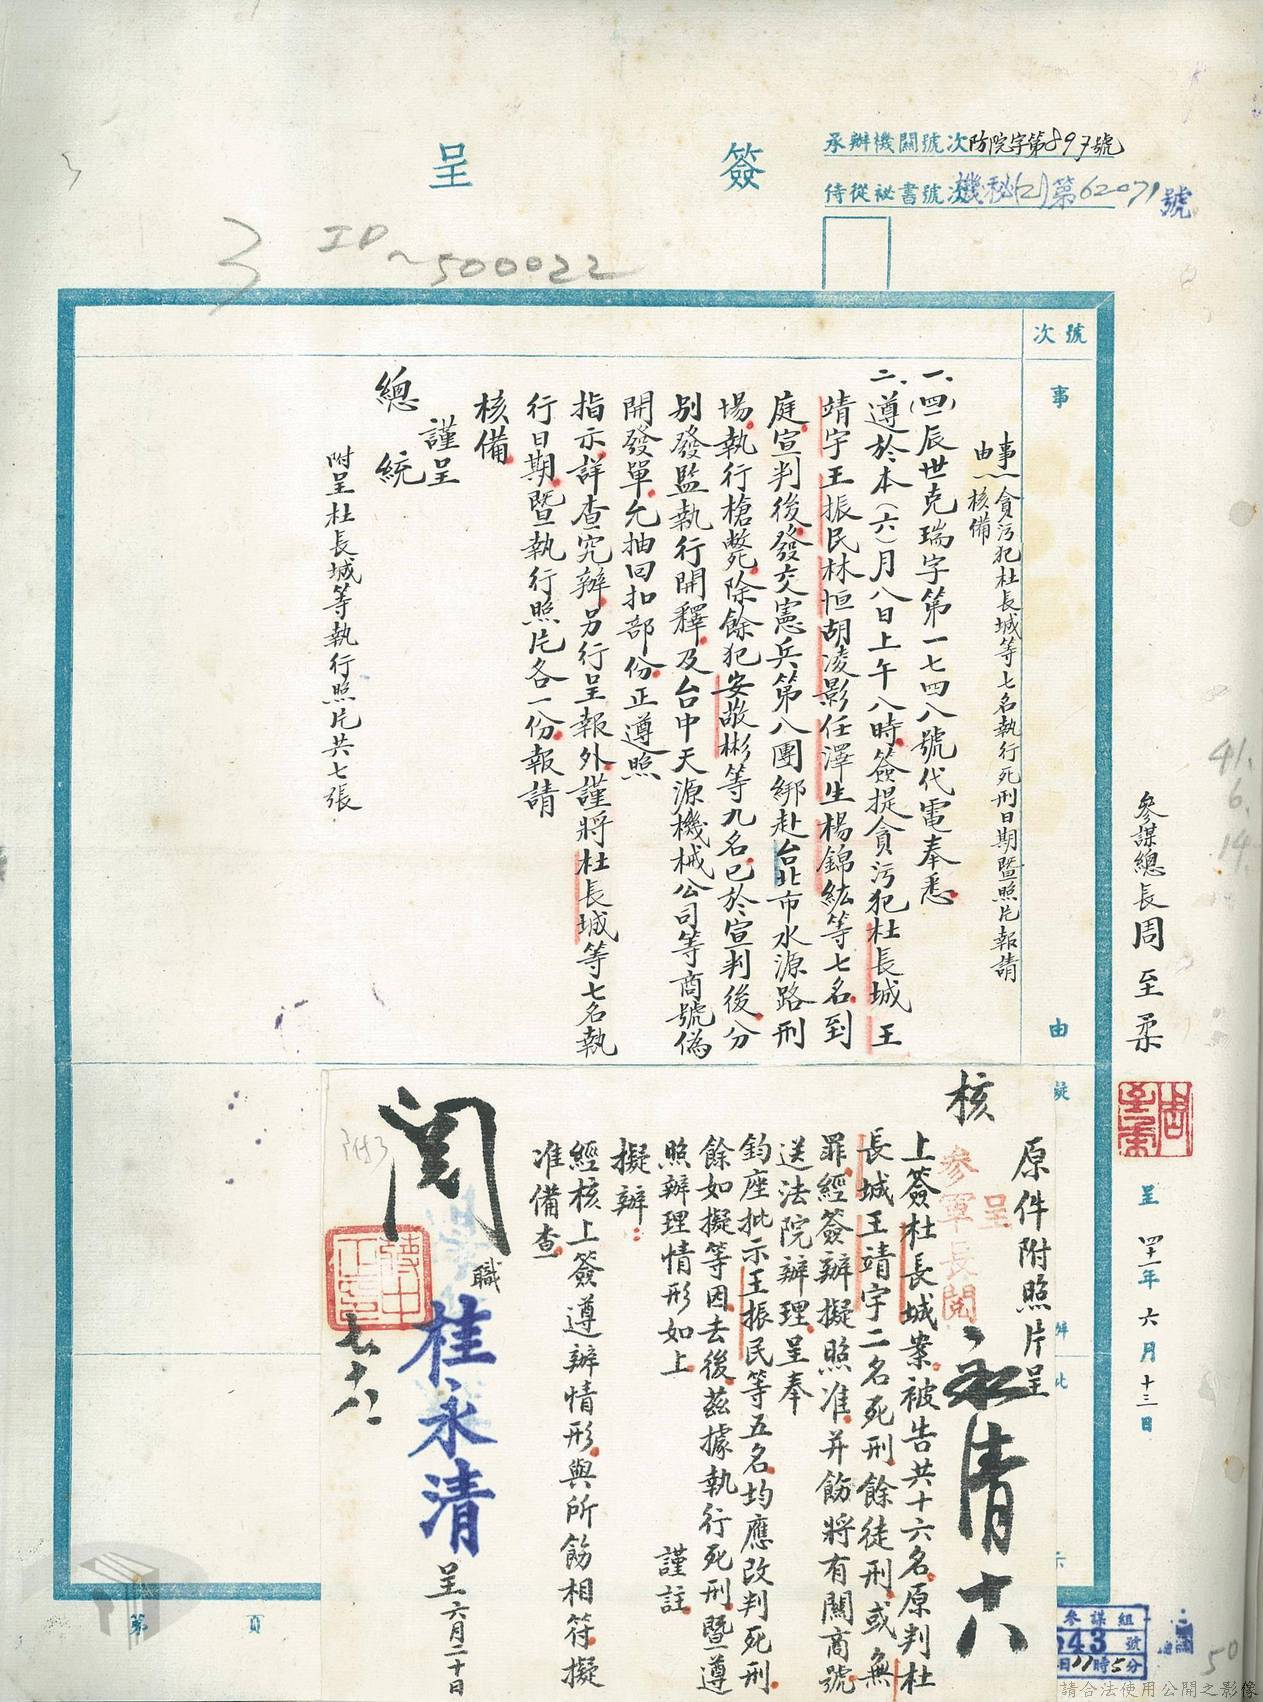 簽呈
承辦機關號次防院字第897號
侍從祕書號次機秘(乙)第62071號
ID~500022
3
號次
事由
擬辦
批示
事由:貪污犯杜長城等七名執行死刑日期暨照片報請
核備
一、(四一)辰世克瑞字第一七四八號代電奉悉
二、遵於本(六)月八日上午八時簽提貪污犯杜長城王
靖宇王振民林恒胡凌影任澤生楊錦紘等七名到
庭宣判後發交憲兵第八團綁赴台北市水源路刑
場執行槍斃除餘犯安敬彬等九名已於宣判後分
別發監執行開釋及台中天源機械公司等商號偽
開發單允抽回扣部份正遵照
指示詳查究辦另行呈報外謹將杜長城等七名執
行日期暨執行照片各一份報請
核備
謹呈
總統
附呈杜長城等執行照片共七張
參謀總長周至柔
呈四十一年六月十三日
41.
6.
14.
原件附照片呈
核
呈
參軍長閱
永清
上簽杜長城案被告共十六名原判杜
長城王靖宇二名死刑餘徒刑或無
罪經簽辦擬照准并飭將有關商號
送法院辦理呈奉
鈞座批示王振民等五名均應改判死刑
餘如擬等因去後茲據執行死刑暨遵
照辦理情形如上 謹註
擬辦:
經核上簽遵辦情形與所飭相符擬
准備查
職桂永清呈六月二十日
閱
蔣中正印
附3
第 頁
參謀組
643號
日11時5分
50
請合法使用公開之影像